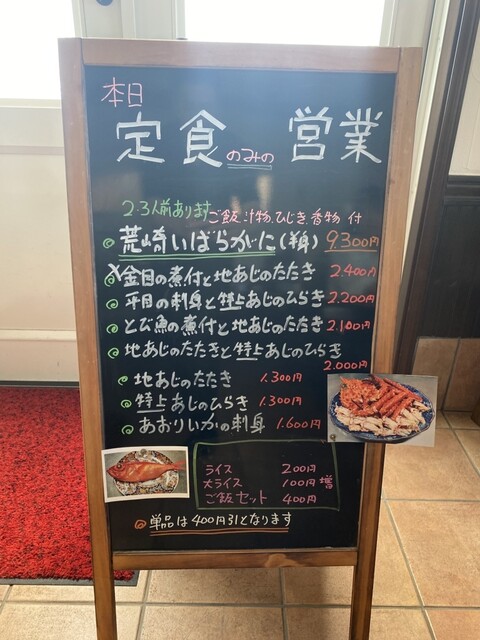 本日
定食のみの営業
2.3人前あります
ご飯、汁物、ひじき、香物 付
荒崎いばらがに(半身) 9300円
X金目の煮付と地あじのたたき 2.400円
平目の刺身と特上あじのひらき 2.200円
とび魚の煮付と地あじのたたき 2.100円
地あじのたたきと特上あじのひらき
2.000円
地あじのたたき 1.300円
特上あじのひらき 1.300円
あおりいかの刺身 1.600円
ライス 200円
大ライス 100円増
ご飯セット 400円
単品は400円引となります